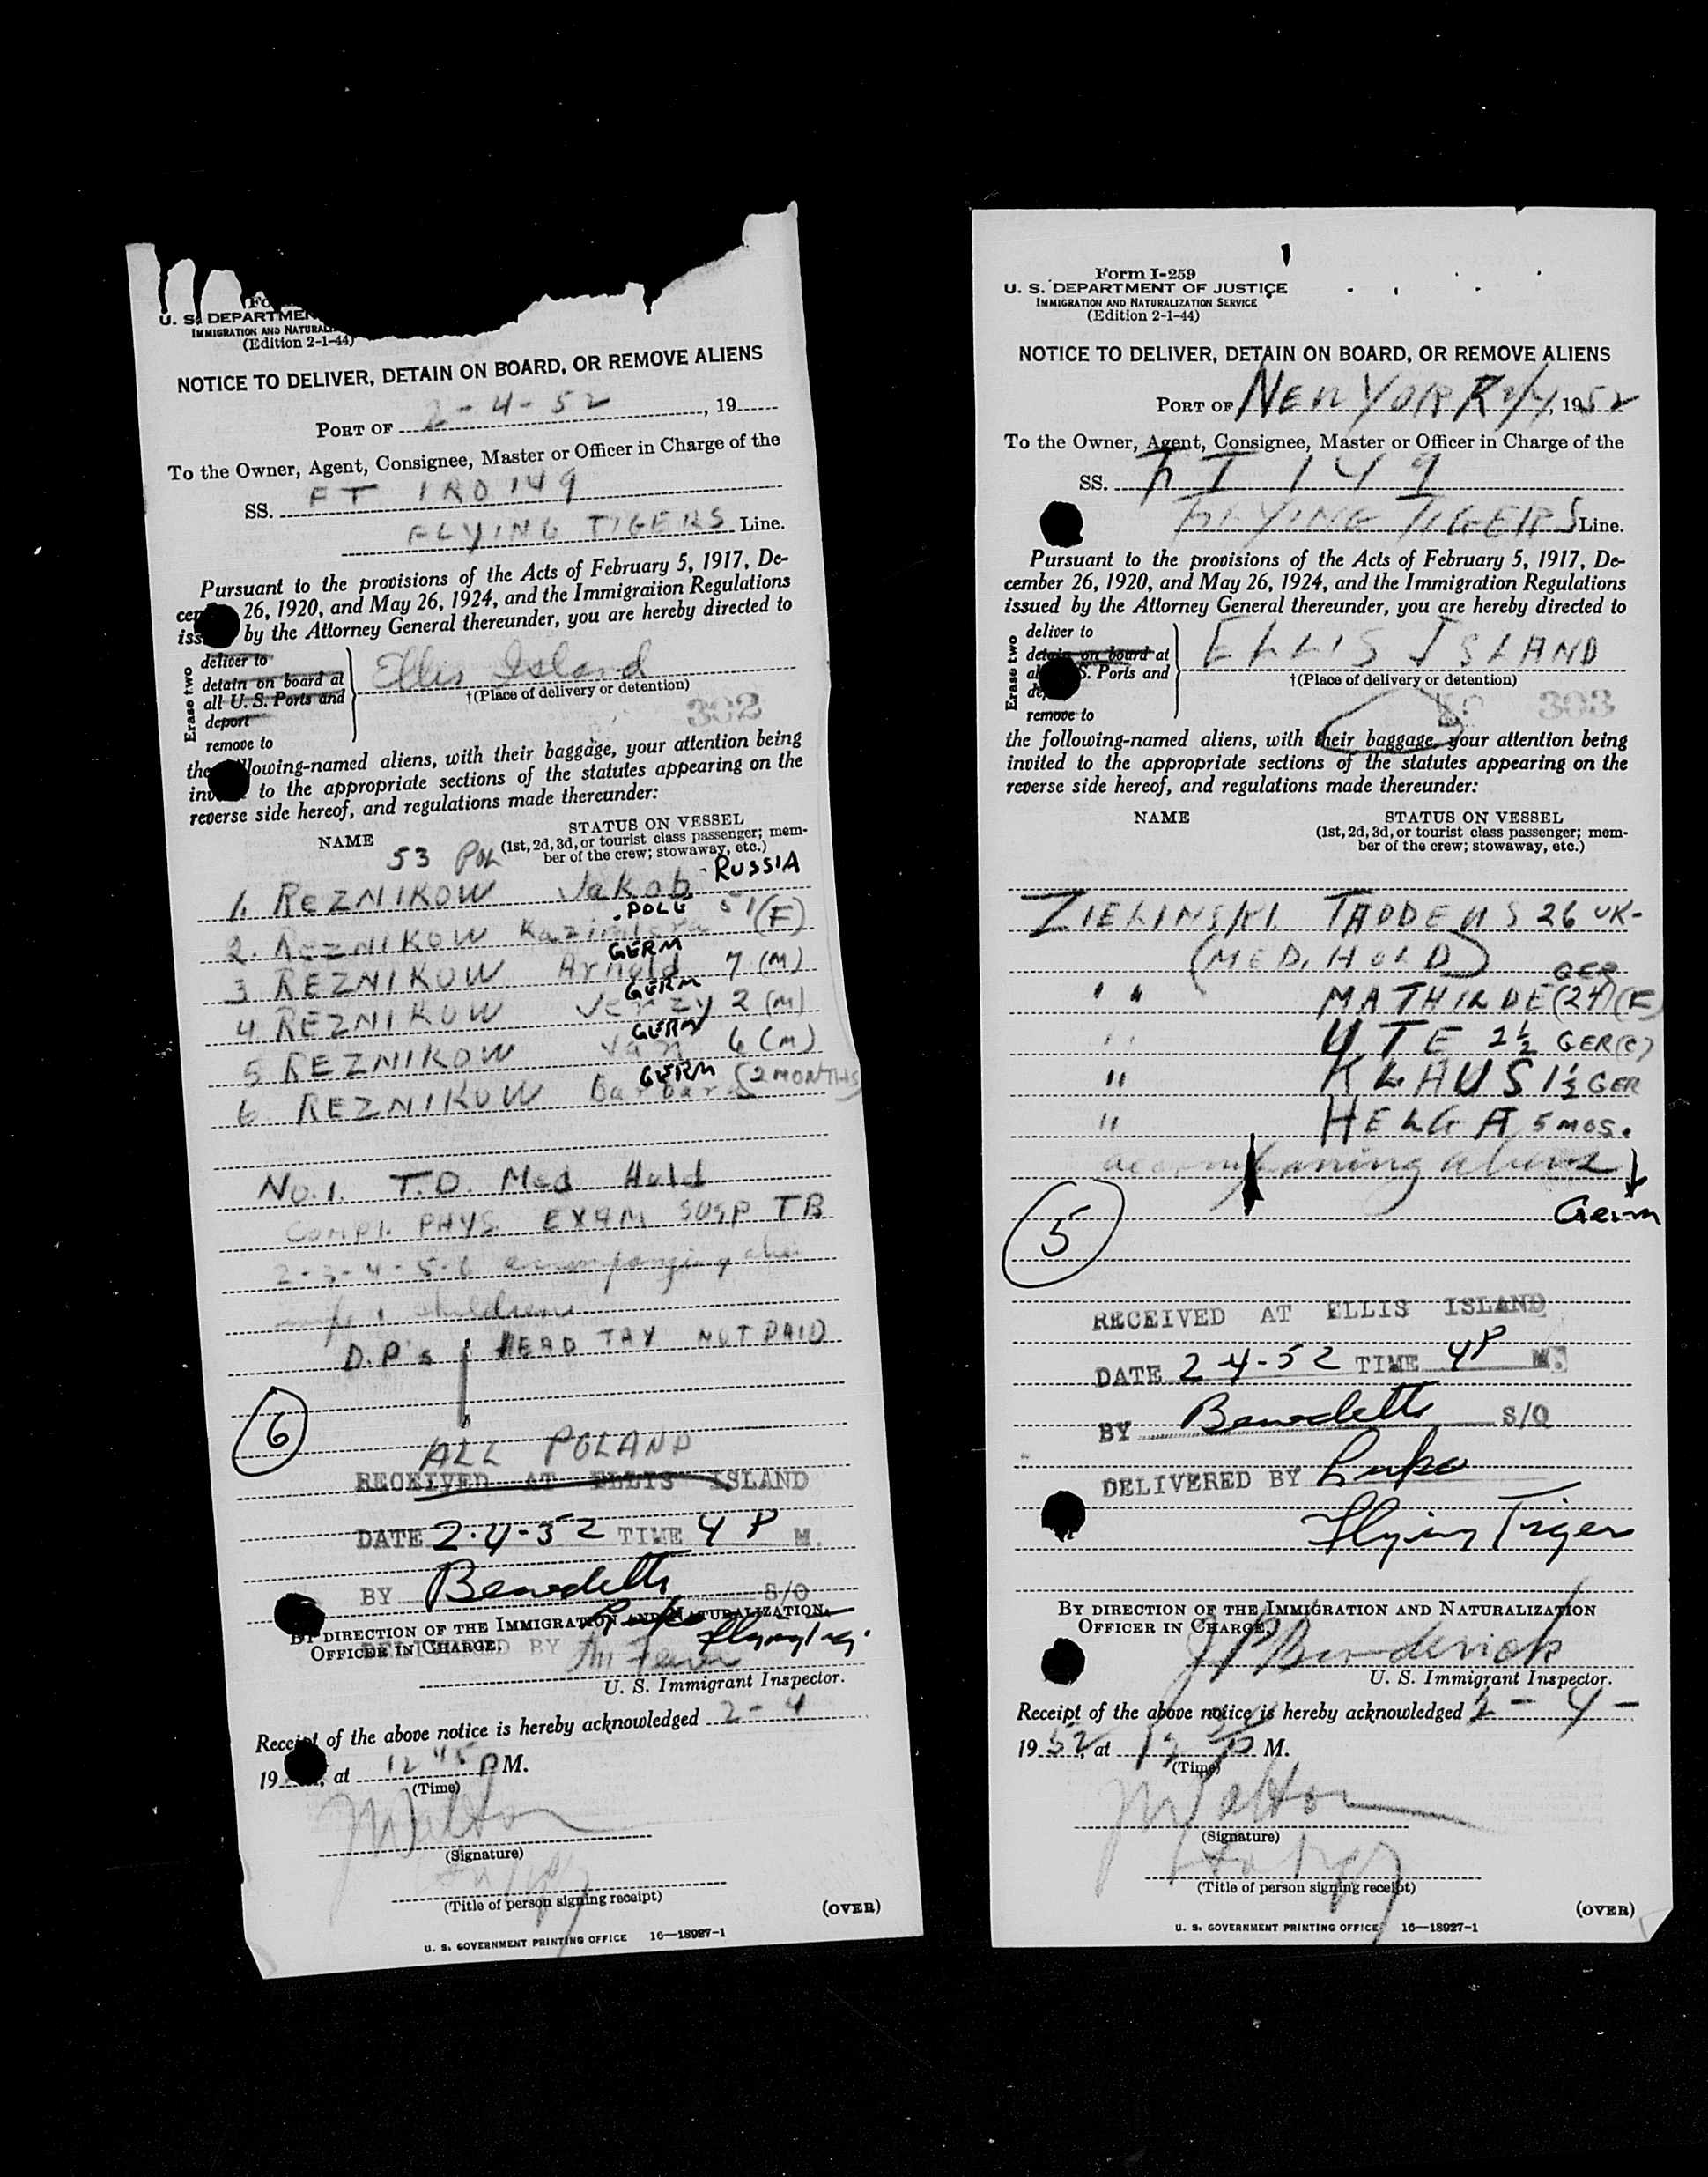 U. S. DEPARTMEN
IMMIGRATION AND NATURAL
(Edition 2-1-44)
NOTICE TO DELIVER, DETAIN ON BOARD, OR REMOVE ALIENS
PORT OF 2-4-52, 19
To the Owner, Agent, Consignee, Master or Officer in Charge of the
SS. FT IRO 149
FLYING TIGERS Line.
Pursuant to the provisions of the Acts of February 5, 1917, De-
cem 26, 1920, and May 26, 1924, and the Immigration Regulations
iss by the Attorney General thereunder, you are hereby directed to
Erase two
deliver to
detain on board at
all U. S. Ports and
deport
remove to
Ellis Island
†(Place of delivery or detention)
302
the llowing-named aliens, with their baggage, your attention being
inv to the appropriate sections of the statutes appearing on the
reverse side hereof, and regulations made thereunder:
NAME
STATUS ON VESSEL
(1st, 2d, 3d, or tourist class passenger; mem-
ber of the crew; stowaway, etc.)
53 POL
1. REZNIKOW Jakob - RUSSIA
2. REZNIKOW Kazimiera POLE 51 (F)
3 REZNIKOW Arnold GERM 7 (M)
4 REZNIKOW Jerzy GERM 2 (M)
5 REZNIKOW Jan GERM 6 (M)
6. REZNIKOW Barbara GERM (2 MONTHS)
No. 1. T.D. Med Hold
COMPL. PHYS. EXAM SUSP TB
2-3-4-5-6 accompanying
children
D.P's HEAD TAX NOT PAID
6
ALL POLAND
RECEIVED AT ELLIS ISLAND
DATE 2-4-52 TIME 4 P M.
BY Benedetti S/O
BY DIRECTION OF THE IMMIGRATION AND NATURALIZATION
OFFICER IN CHARGE.
DELIVERED BY Lupo Flying Tig.
U. S. Immigrant Inspector.
Receipt of the above notice is hereby acknowledged 2-4
19, at 12 45 P M.
(Time)
J Walton
(Signature)
(Title of person signing receipt)
(OVER)
U. S. GOVERNMENT PRINTING OFFICE 16—18927-1
Form I-259
U. S. DEPARTMENT OF JUSTICE
IMMIGRATION AND NATURALIZATION SERVICE
(Edition 2-1-44)
NOTICE TO DELIVER, DETAIN ON BOARD, OR REMOVE ALIENS
PORT OF NEW YORK 2/4, 1952
To the Owner, Agent, Consignee, Master or Officer in Charge of the
SS. FT 149
FLYING TIGERS Line.
Pursuant to the provisions of the Acts of February 5, 1917, De-
cember 26, 1920, and May 26, 1924, and the Immigration Regulations
issued by the Attorney General thereunder, you are hereby directed to
Erase two
deliver to
detain on board at
al S. Ports and
de
remove to
ELLIS ISLAND
†(Place of delivery or detention)
303
the following-named aliens, with their baggage, your attention being
invited to the appropriate sections of the statutes appearing on the
reverse side hereof, and regulations made thereunder:
NAME
STATUS ON VESSEL
(1st, 2d, 3d, or tourist class passenger; mem-
ber of the crew; stowaway, etc.)
ZIELINSKI. TADDEUS 26 UK-
(MED. HOLD)
" " MATHILDE (24) (F) GER
" " UTE 2½ GER (C)
" KLAUS 1½ GER
" HELGA 5 MOS.
accompaning aliens
Germ
5
RECEIVED AT ELLIS ISLAND
DATE 2-4-52 TIME 4P M.
BY Benedetti S/O
DELIVERED BY Lupo
Flying Tiger
BY DIRECTION OF THE IMMIGRATION AND NATURALIZATION
OFFICER IN CHARGE.
J P Broderick
U. S. Immigrant Inspector.
Receipt of the above notice is hereby acknowledged 2-4-
1952, at 12 P M.
(Time)
J Walton
(Signature)
(Title of person signing receipt)
(OVER)
U. S. GOVERNMENT PRINTING OFFICE 16—18927-1